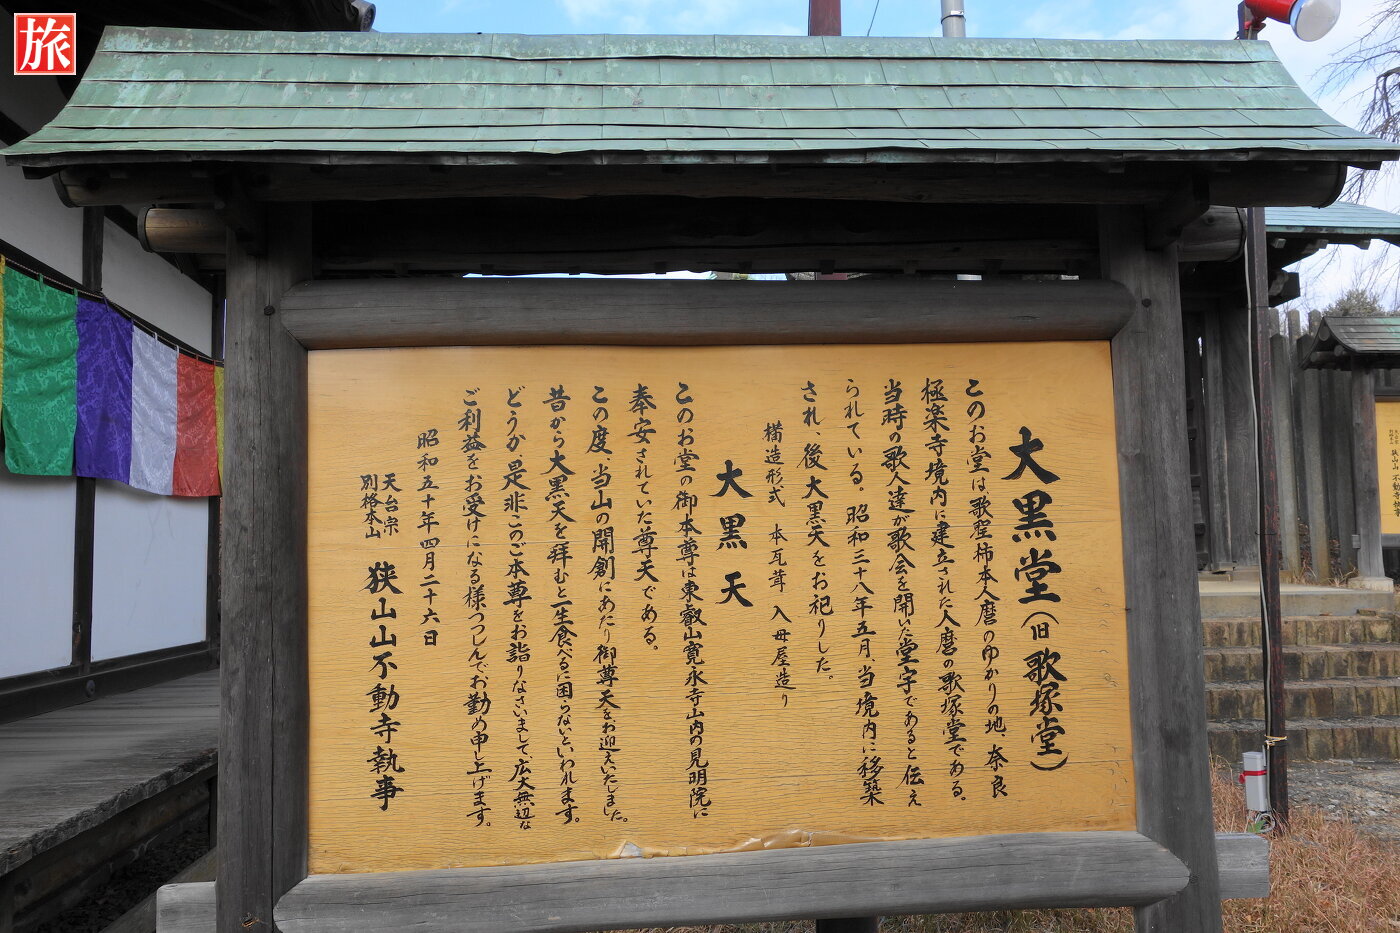 旅
大黒堂(旧歌塚堂)
このお堂は、歌聖柿本人麿のゆかりの地、奈良
極楽寺境内に建立された人麿の歌塚堂である。
当時の歌人達が歌会を開いた堂宇であると伝え
られている。昭和三十八年五月、当境内に移築
され、後大黒天をお祀りした。
構造形式 本瓦葺 入母屋造り
大黒天
このお堂の御本尊は東叡山寛永寺山内の見明院に
奉安されていた尊天である。
この度、当山の開創にあたり御尊天をお迎えいたしました。
昔から大黒天を拝むと一生食べるに困らないといわれます。
どうか、是非このご本尊をお詣りなさいまして、広大無辺な
ご利益をお受けになる様つつしんでお勤め申し上げます。
昭和五十年四月二十六日
天台宗
別格本山
狭山山不動寺執事